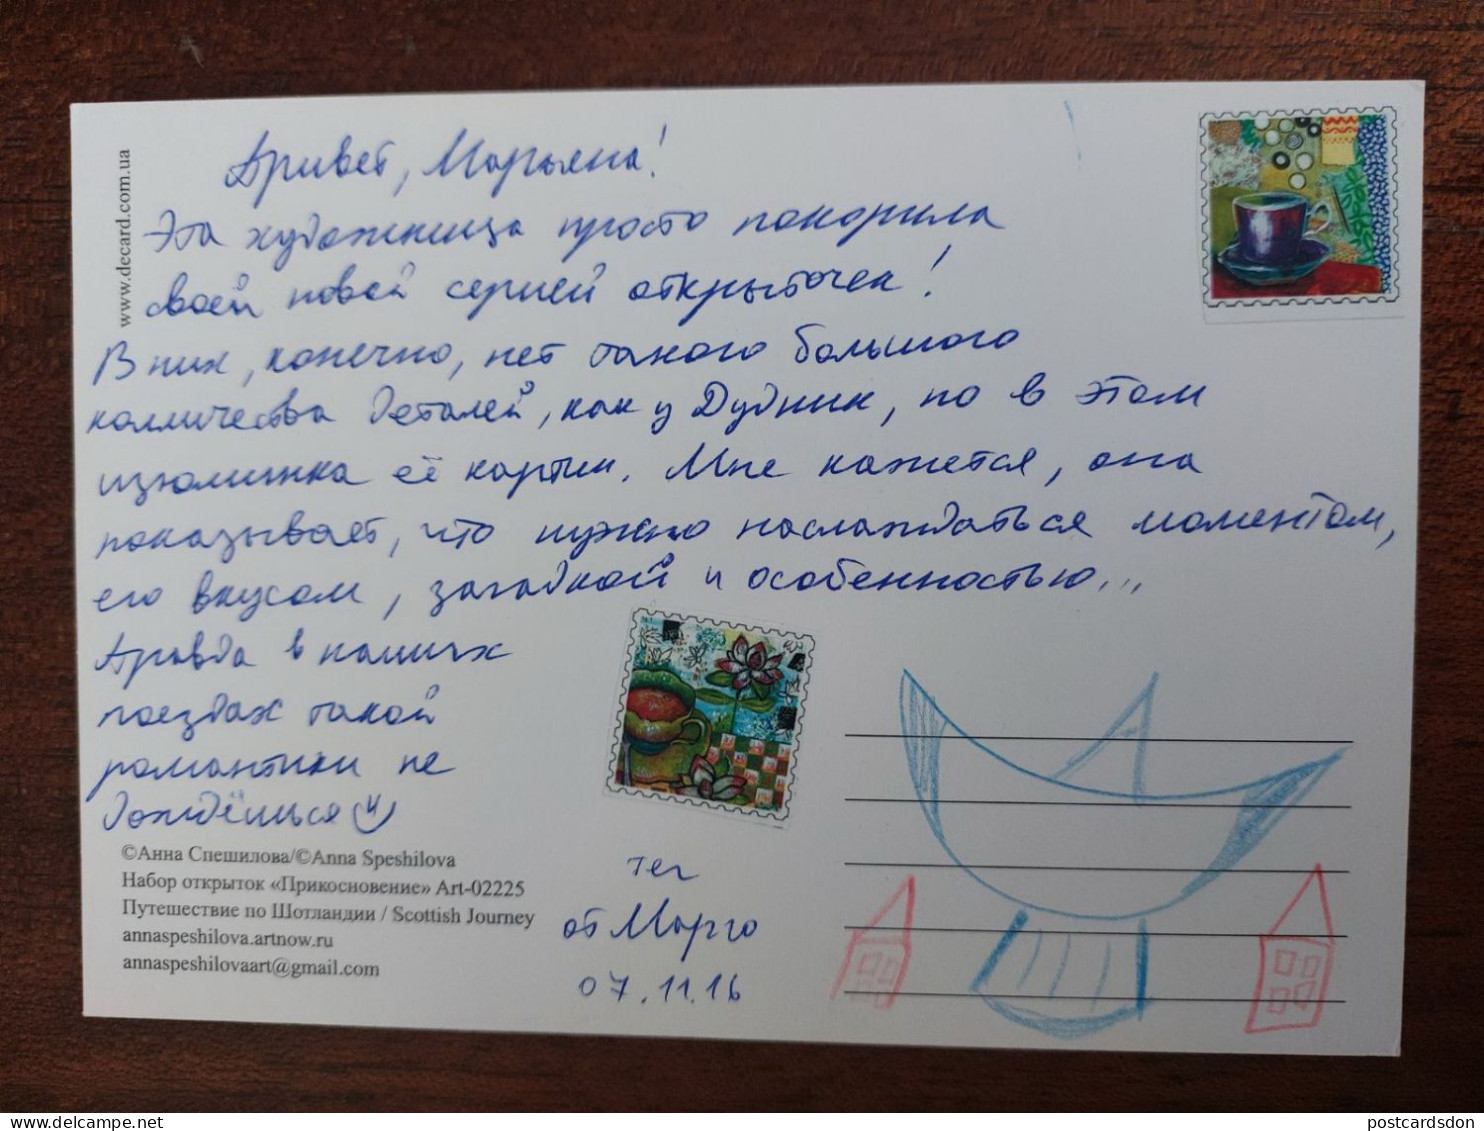 www.decard.com.ua
Привет, Марьяна!
Эта художница просто покорила
своей новой серией открыточек!
В них, конечно, нет такого большого
количества деталей, как у Дудник, но в этом
изюминка её картин. Мне кажется, она
показывает, что нужно наслаждаться моментом,
его вкусом, загадкой и особенностью...
Правда в наших
поездах такой
романтики не
дождёшься
©Анна Спешилова/©Anna Speshilova
Набор открыток «Прикосновение» Art-02225
Путешествие по Шотландии / Scottish Journey
annaspeshilova.artnow.ru
annaspeshilovaart@gmail.com
тег
от Марго
07.11.16
www.delcampe.net
postcardsdon